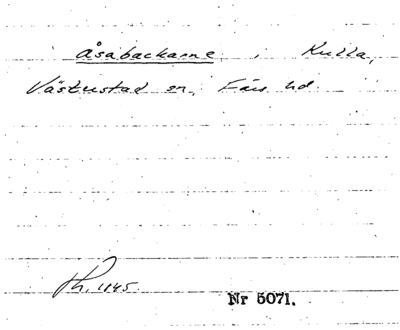 Åsabackarne, i Kulla,
Västustad sn, Färs hd.
Th. 1845
Nr 5071.